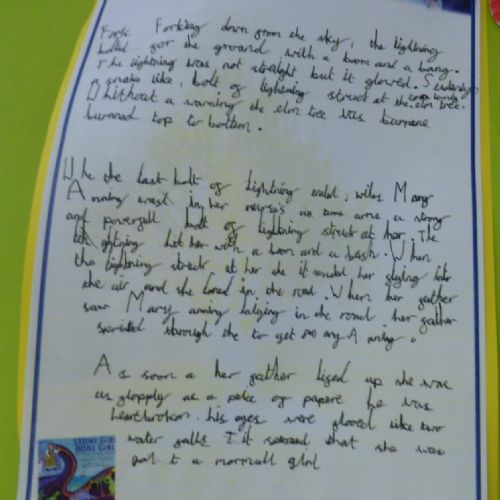 Fork Forking down from the sky, the lightning
bolted for the ground with a boom and a bang.
The lightning was not straight but it glowed. Suddenly
a snake like, bolt of lightning struct at the elm tree.
Without a warning the elm tree was
burned top to bottom.
the last bolt of lightning Mary
Anning in her arms, a strong
and powerfull bolt of lightning struct at her. The
lightying hit her with a boom and a bash. When
the lightning struct at her it sended her flying into
the air and she land in the road. When her father
saw Mary anning in the road her father
sprinted through the to get Mary Anning.
As soon a her father lifed up she was
as flopply as a of paper he was
heartbroken. his eyes were like two
water falls I it seemed that she was
not a normall girl
STONE GIRL
BONE GIRL